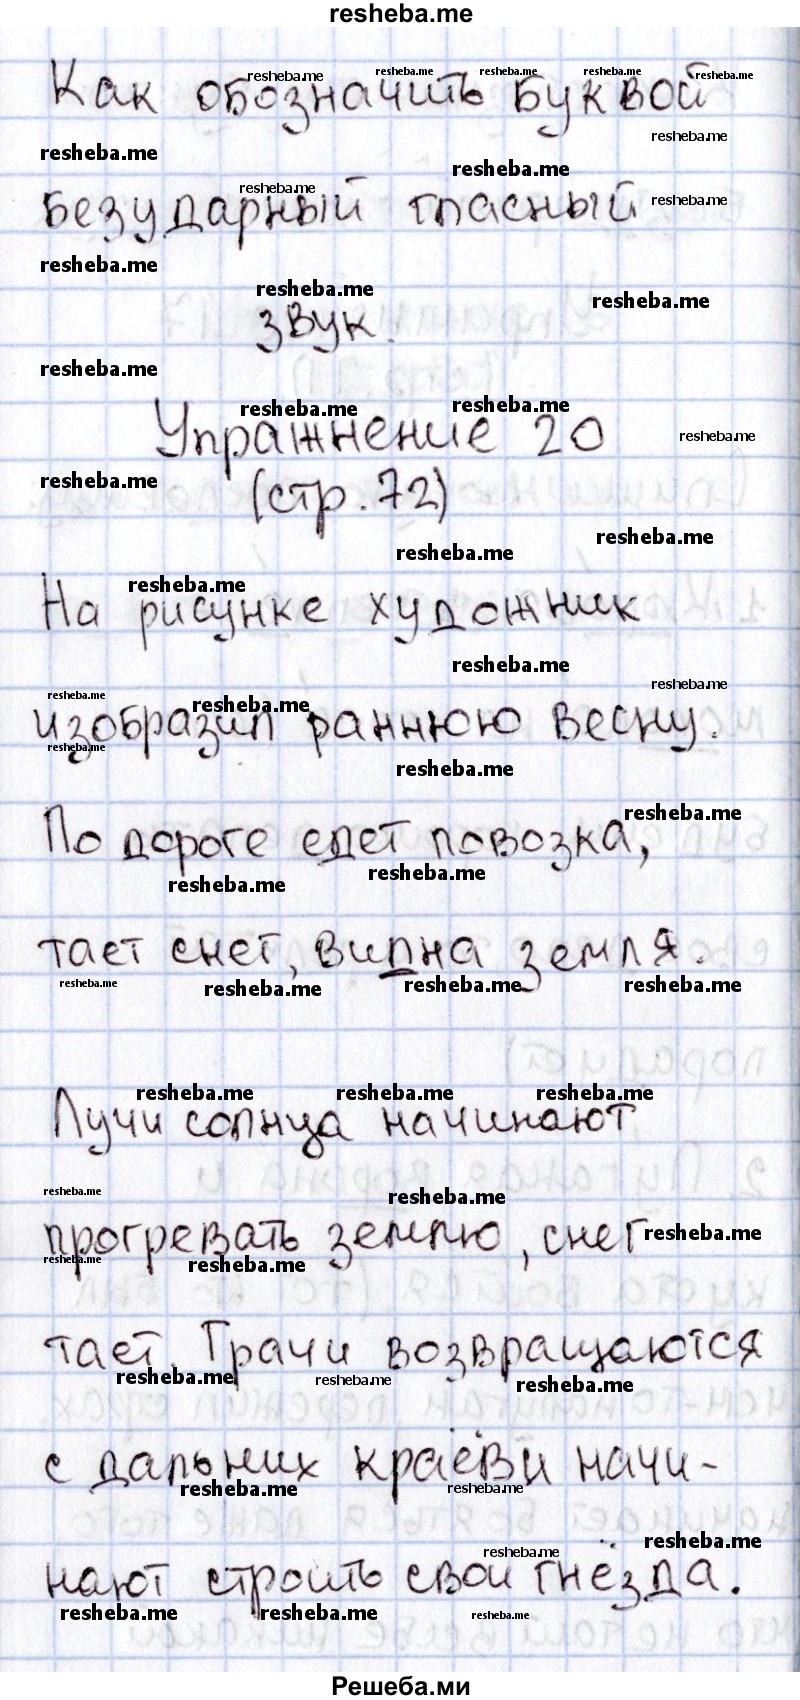 resheba.me
Как обозначить буквой
безударный гласный
звук.
Упражнение 20
(стр. 72)
На рисунке художник
изобразил раннюю весну.
По дороге едет повозка,
тает снег, видна земля.
Лучи солнца начинают
прогревать землю, снег
тает. Грачи возвращаются
с дальних краёв и начи-
нают строить свои гнёзда.
Решеба.ми